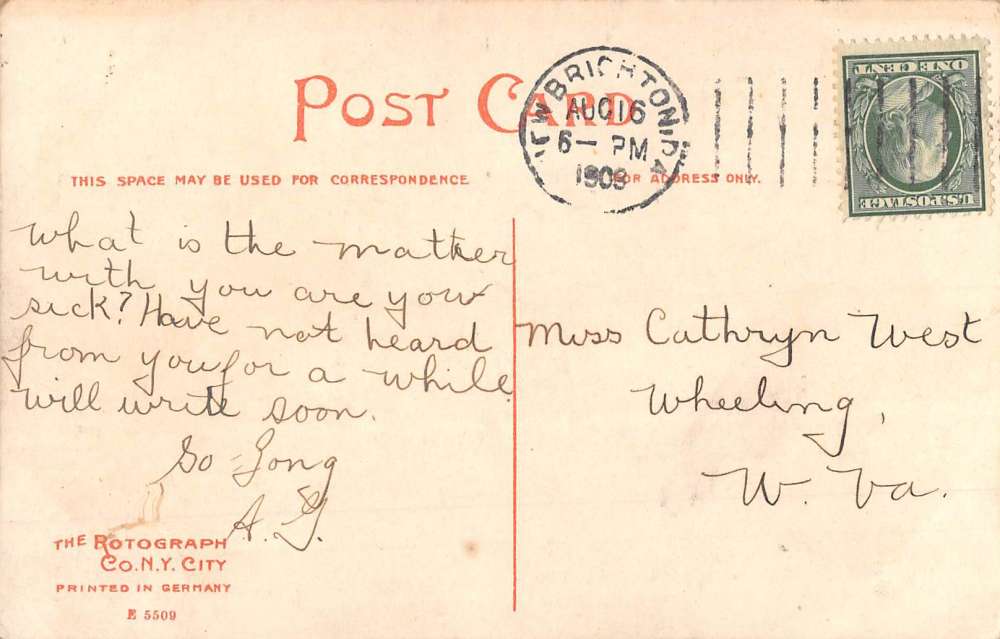 POST CARD
NEW BRIGHTON, PA
AUG 16
6 – PM
1909
ONE CENT
U.S. POSTAGE
THIS SPACE MAY BE USED FOR CORRESPONDENCE
FOR ADDRESS ONLY.
What is the matter
with you are you
sick? Have not heard
from you for a while
will write soon.
So-Long
Miss Cathryn West
Wheeling,
W. Va.
THE ROTOGRAPH
CO. N.Y. CITY
PRINTED IN GERMANY
E 5509